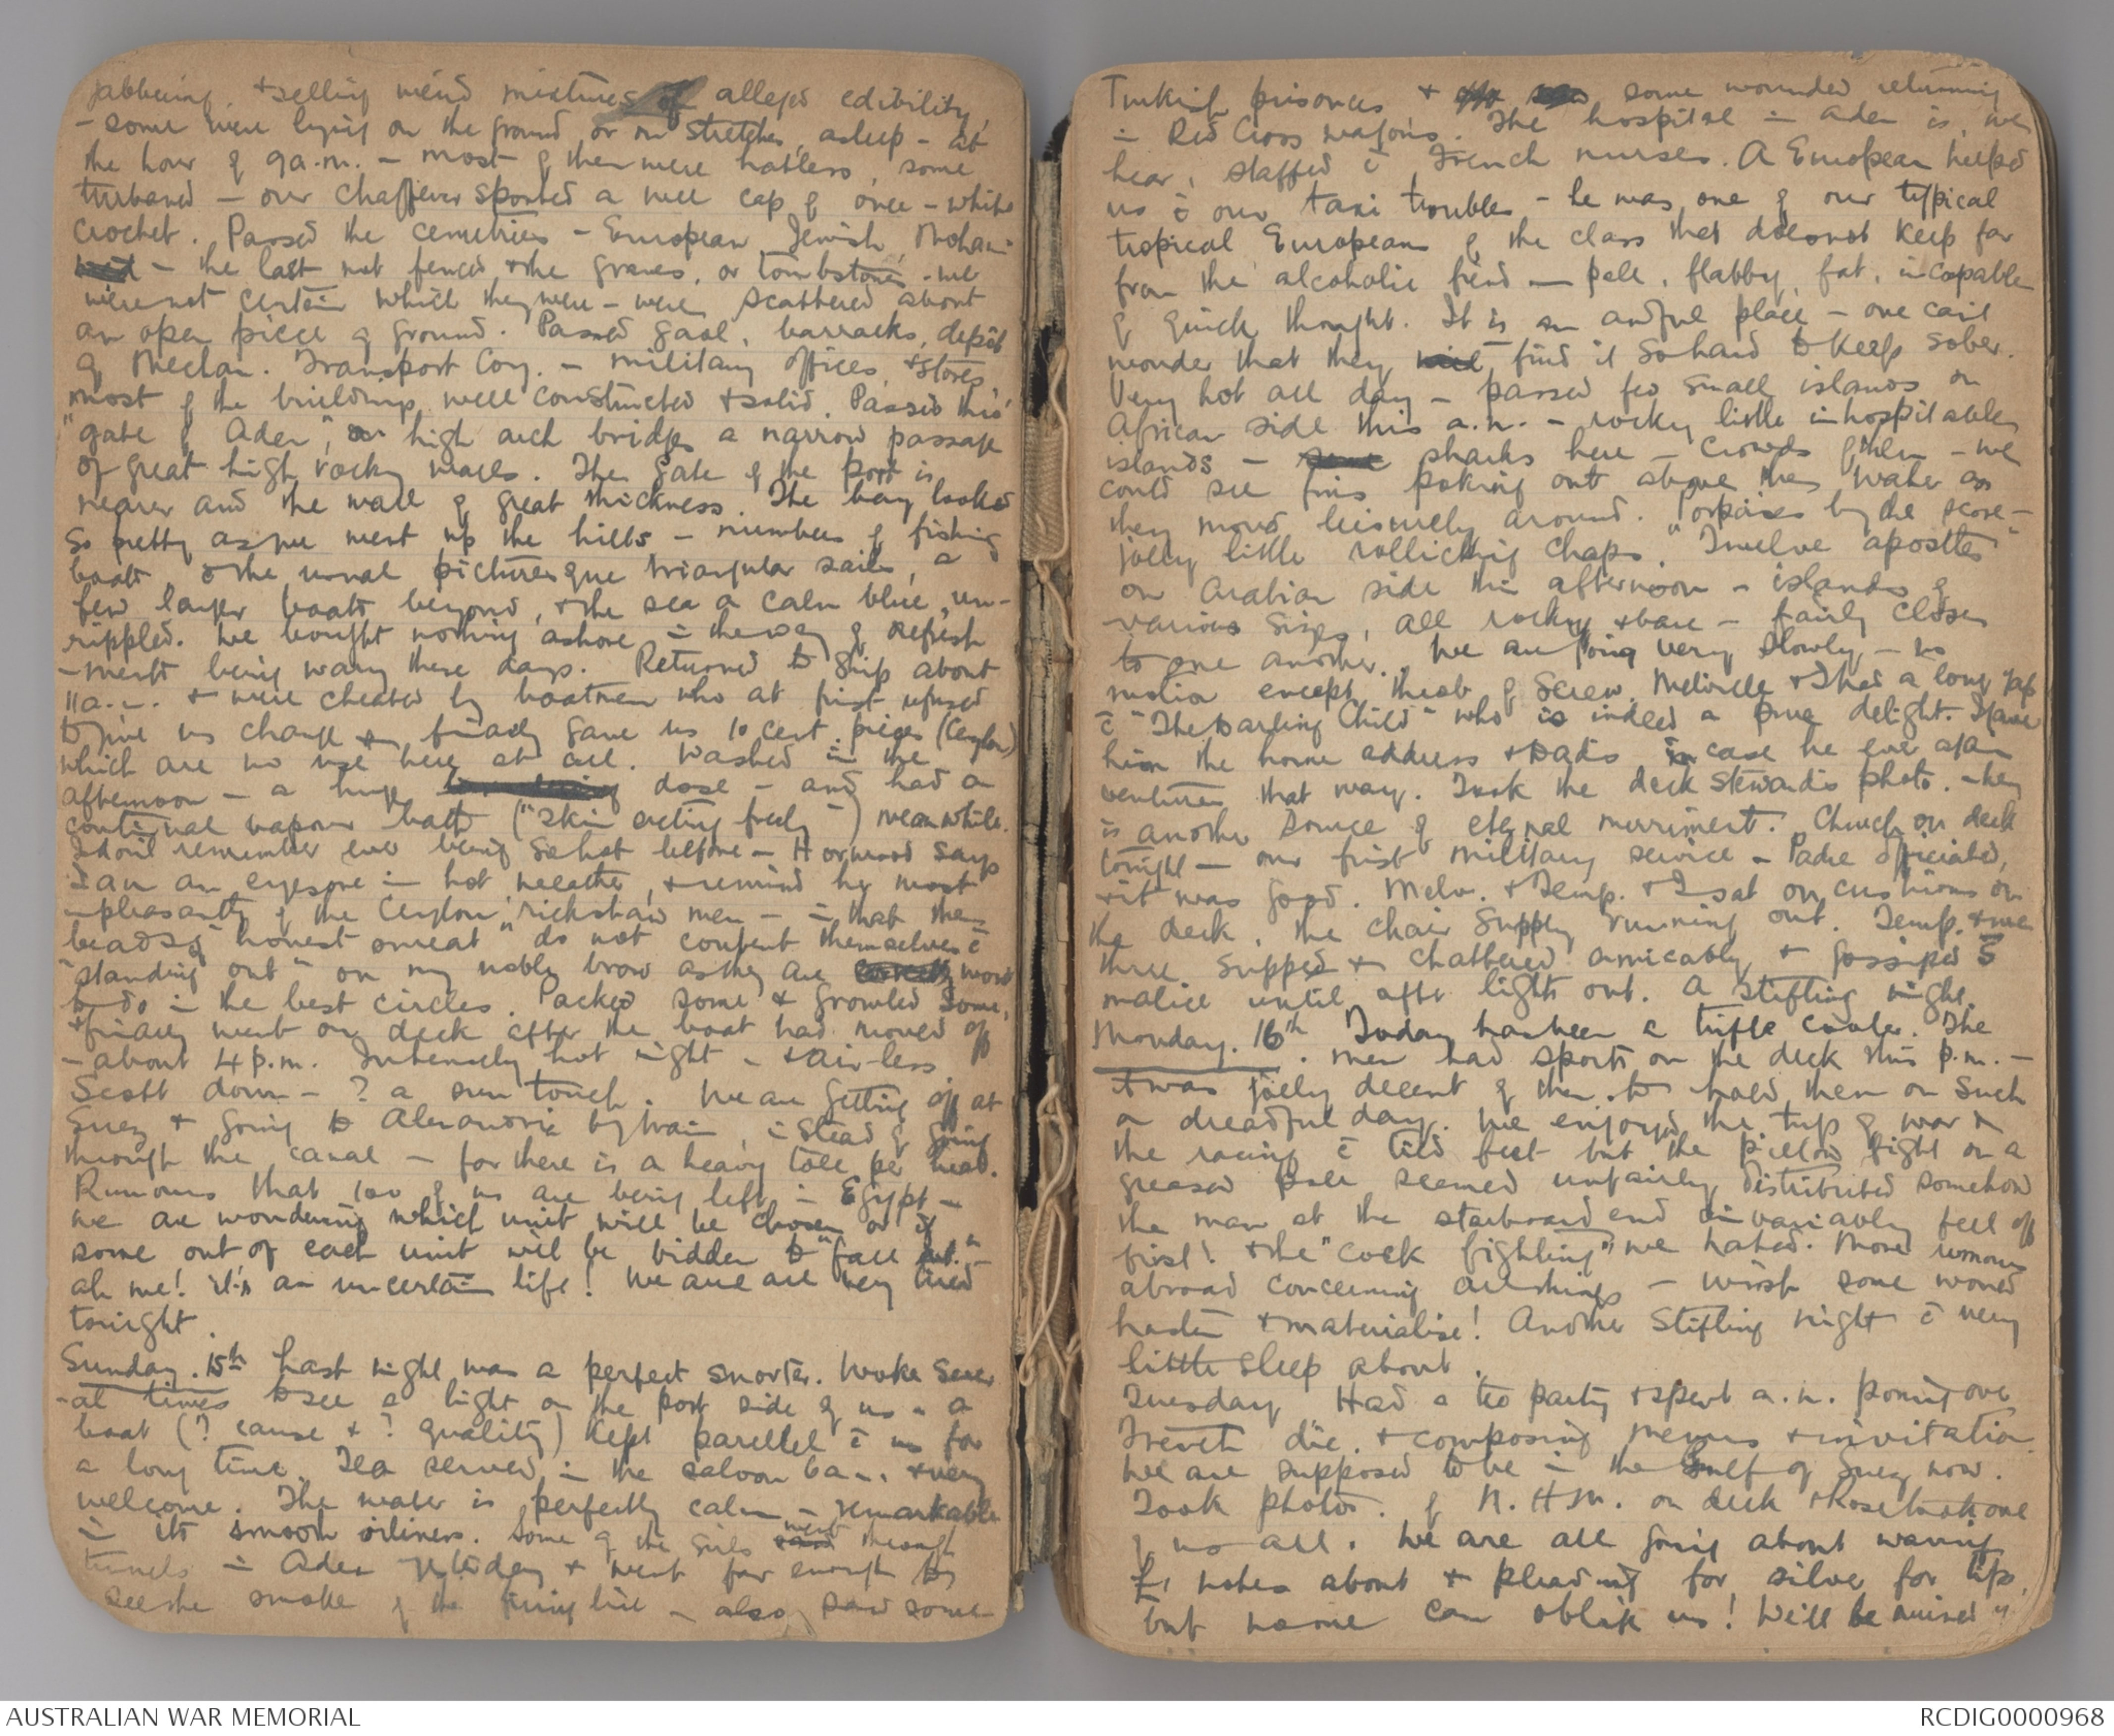 jabbering, & selling weird mixtures of alleged edibility,
- some were lying on the ground or on stretchers, asleep - at
the hour of 9 a.m. - most of them were hatless, some
turbaned - our chaffever sported a wee cap of once - white
crochet. Passed the cemetries - European, Jewish, Moham-
- the last not fenced & the graves, or tombstones - we
were not certain which they were - were scattered about
an open piece of ground. Passed gaol, barracks, depôt
of Mechan. Transport Coy. - military offices, & stores,
most of the buildings well constructed & solid. Passed thro'
"gate of Aden", high arch bridges a narrow passage
of great high rocky walls. The gate of the port is
nearer and the wall of great thickness. The bay looked
so pretty as we went up the hills - numbers of fishing
boats, & the usual picturesque triangular sails, a
few larger boats beyond, & the sea a calm blue, un-
rippled. We bought nothing ashore in the way of refresh
-ment being wary these days. Returned to ship about
11 a.m. & were cheated by boatmen who at first refused
to give us change & finally gave us 10 cent. pieces (Ceylon)
which are no use here at all. Washed in the
afternoon - a huge dose - and had a
continual vapour bath ("skin acting freely") meanwhile.
I don't remember ever being so hot before - Horwood says
I am an eyesore in hot weather, & remind her most
unpleasantly of the Ceylon 'rickshaw men - in that the
beads of "honest sweat" do not content themselves c̄
"standing out" on my noble brow as they are wont
to do in the best circles. Packed some & growled some,
& finally went on deck after the boat had moved off
- about 4 p.m. Intensely hot night - & air-less
Scott down - ? a sun touch. We are getting off at
Suez & going to Alexandria by train, instead of going
through the canal - for there is a heavy toll per head.
Rumours that 100 of us are being left in Egypt -
we are wondering which unit will be chosen or if
some out of each unit will be bidden to "fall out." -
ah me! it's an uncertain life! We are all very tired
tonight.
Sunday. 15th Last night was a perfect snorter. Woke sever
-al times to see a light on the port side of us - a
boat (? cause & ? quality) kept parellel c̄ us for
a long time. Tea served in the saloon 6 a.m. & very
welcome. The water is perfectly calm - remarkable
in its smooth oiliness. Some of the girls went through
tunnels in Aden yesterday & went far enough to
see the smoke of the firing line - also saw some
Turkish prisoners & some wounded returning
in Red Cross wagons. The hospital in Aden is, we
hear, staffed c̄ French nurses. A European helped
us c̄ our taxi troubles - he was one of our typical
tropical Europeans of the class that does not keep far
from the alcoholic fiend - pale, flabby, fat, incapable
of quick thought. It is an awful place - one can't
wonder that they find it so hard to keep sober.
Very hot all day - passed few small islands on
African side this a.m. - rocky little inhospitable
islands - sharks here - crowds of them - we
could see fins poking out above the water as
they moved leisurely around. Porpoises by the score -
jolly little rollicking chaps. "Twelve apostles"
on Arabian side this afternoon - islands of
various sizes, all rocky & bare - fairly close
to one another. We are going very slowly - no
motion except throb of screw. Melville & I had a long yap
c̄ "The Darling Child" who is indeed a pure delight. I gave
him the home address & Dad's in case he ever again
ventures that way. Took the deck steward's photo. - he
is another source of eternal merriment. Church on deck
tonight - our first military service - Padre officiated,
& it was good. Melv. & Temp. & I sat on cushions on
the deck, the chair supply running out. Temp. & we
three supped & chattered amicably & gossiped s̄
malice until after lights out. A stifling night.
Monday. 16th. Today has been a trifle cooler. The
men had sports on the deck this p.m. -
it was jolly decent of them to hold them on such
a dreadful day. We enjoyed the tug of war &
the racing c̄ tied feet but the pillow fight on a
greased pole seemed unfairly distributed somehow
the man at the starboard end invariably fell off
first! & the "cock fighting" we hated. More rumours
abroad concerning - wish some would
hasten & materialise! Another stifling night c̄ very
little sleep about.
Tuesday Had a tea party & spent a.m. poring over
French dic. & composing menus & invitation
We are supposed to be in the Gulf of Suez now.
Took photos. of N. H. M. on deck & Rose took one
of us all. We are all going about waving
£1 notes about & pleading for silver for tips,
but no one can oblige us! We'll be ruined
AUSTRALIAN WAR MEMORIAL
RCDIG0000968